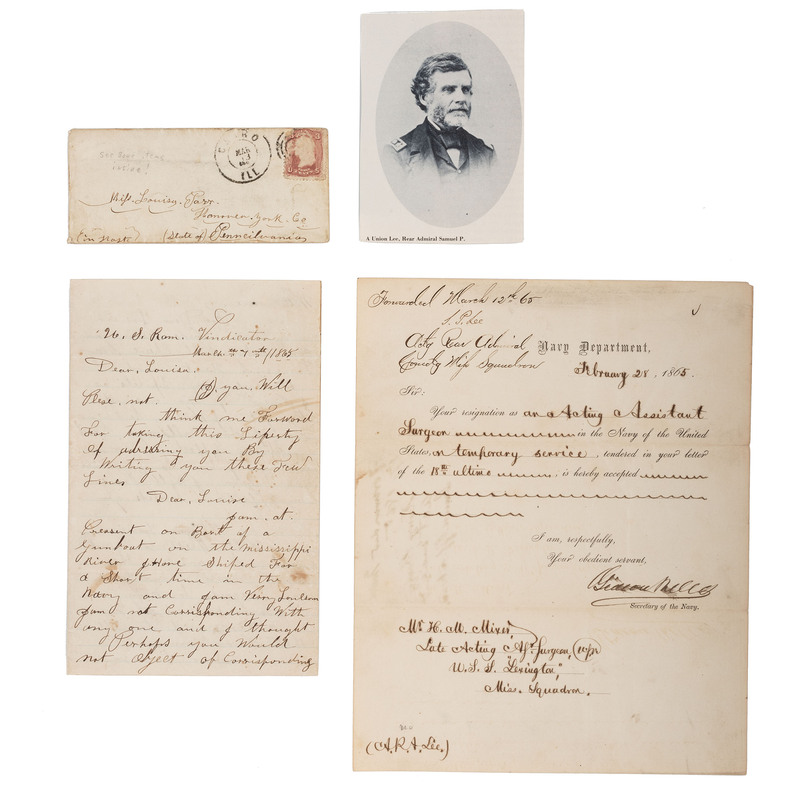 CAIRO
MAR
ILL
Miss. Louisa. Parr.
Hanover. York. Co
(in Hast) (State of) Penncilvania
A Union Lee, Rear Admiral Samuel P.
U. S. Ram. Vindicator
March 7th /1865
Dear, Louisa.
you, Will
Plese, not,
think me Forward
For taking this Liperty
of adressing you By
Writing you these Few
Lines
Dear, Louise
I am. at.
Preasent on Bord of a
Gunboat on the Mississippi
River I Have Shiped For
a Short time in the
Navy and I am Very Lonesom
I am not Corrisponding With
any one and I thought
Perhaps you Would
not Object of Corrisponding
Forwarded March 12th 65
S. P. Lee
Actg Rear Admiral
Comdg Miss Squadron
Navy Department,
February 28. 1865.
Sir:
Your resignation as an Acting Assistant
Surgeon in the Navy of the United
States, on temporary service, tendered in your letter
of the 18th ultimo, is hereby accepted
I am, respectfully,
Your obedient servant,
Gideon Welles
Secretary of the Navy.
Mr. H. M. Mixer,
Late Acting Asst. Surgeon,
U. S. S. "Lexington,"
Miss. Squadron.
(A. R. A. Lee.)